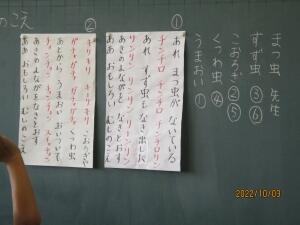 のこえ
まつ虫 先生
すず虫 ③⑥
こおろぎ ②⑤
くつわ虫 ④
うまおい ①
①
あれ まつ虫が ないている
チンチロ チンチロ チンチロリン
あれ すず虫も なき出した
リンリン リンリン リーンリン
あきのよながを なきとおす
ああ おもしろい むしのこえ
②
キリキリ キリキリ こおろぎや
ガチャガチャ ガチャガチャ くつわ虫
あとから うまおい おいついて
チョンチョン チョンチョン スイーッチョン
あきのよながを なきとおす
ああ おもしろい むしのこえ
2022/10/03